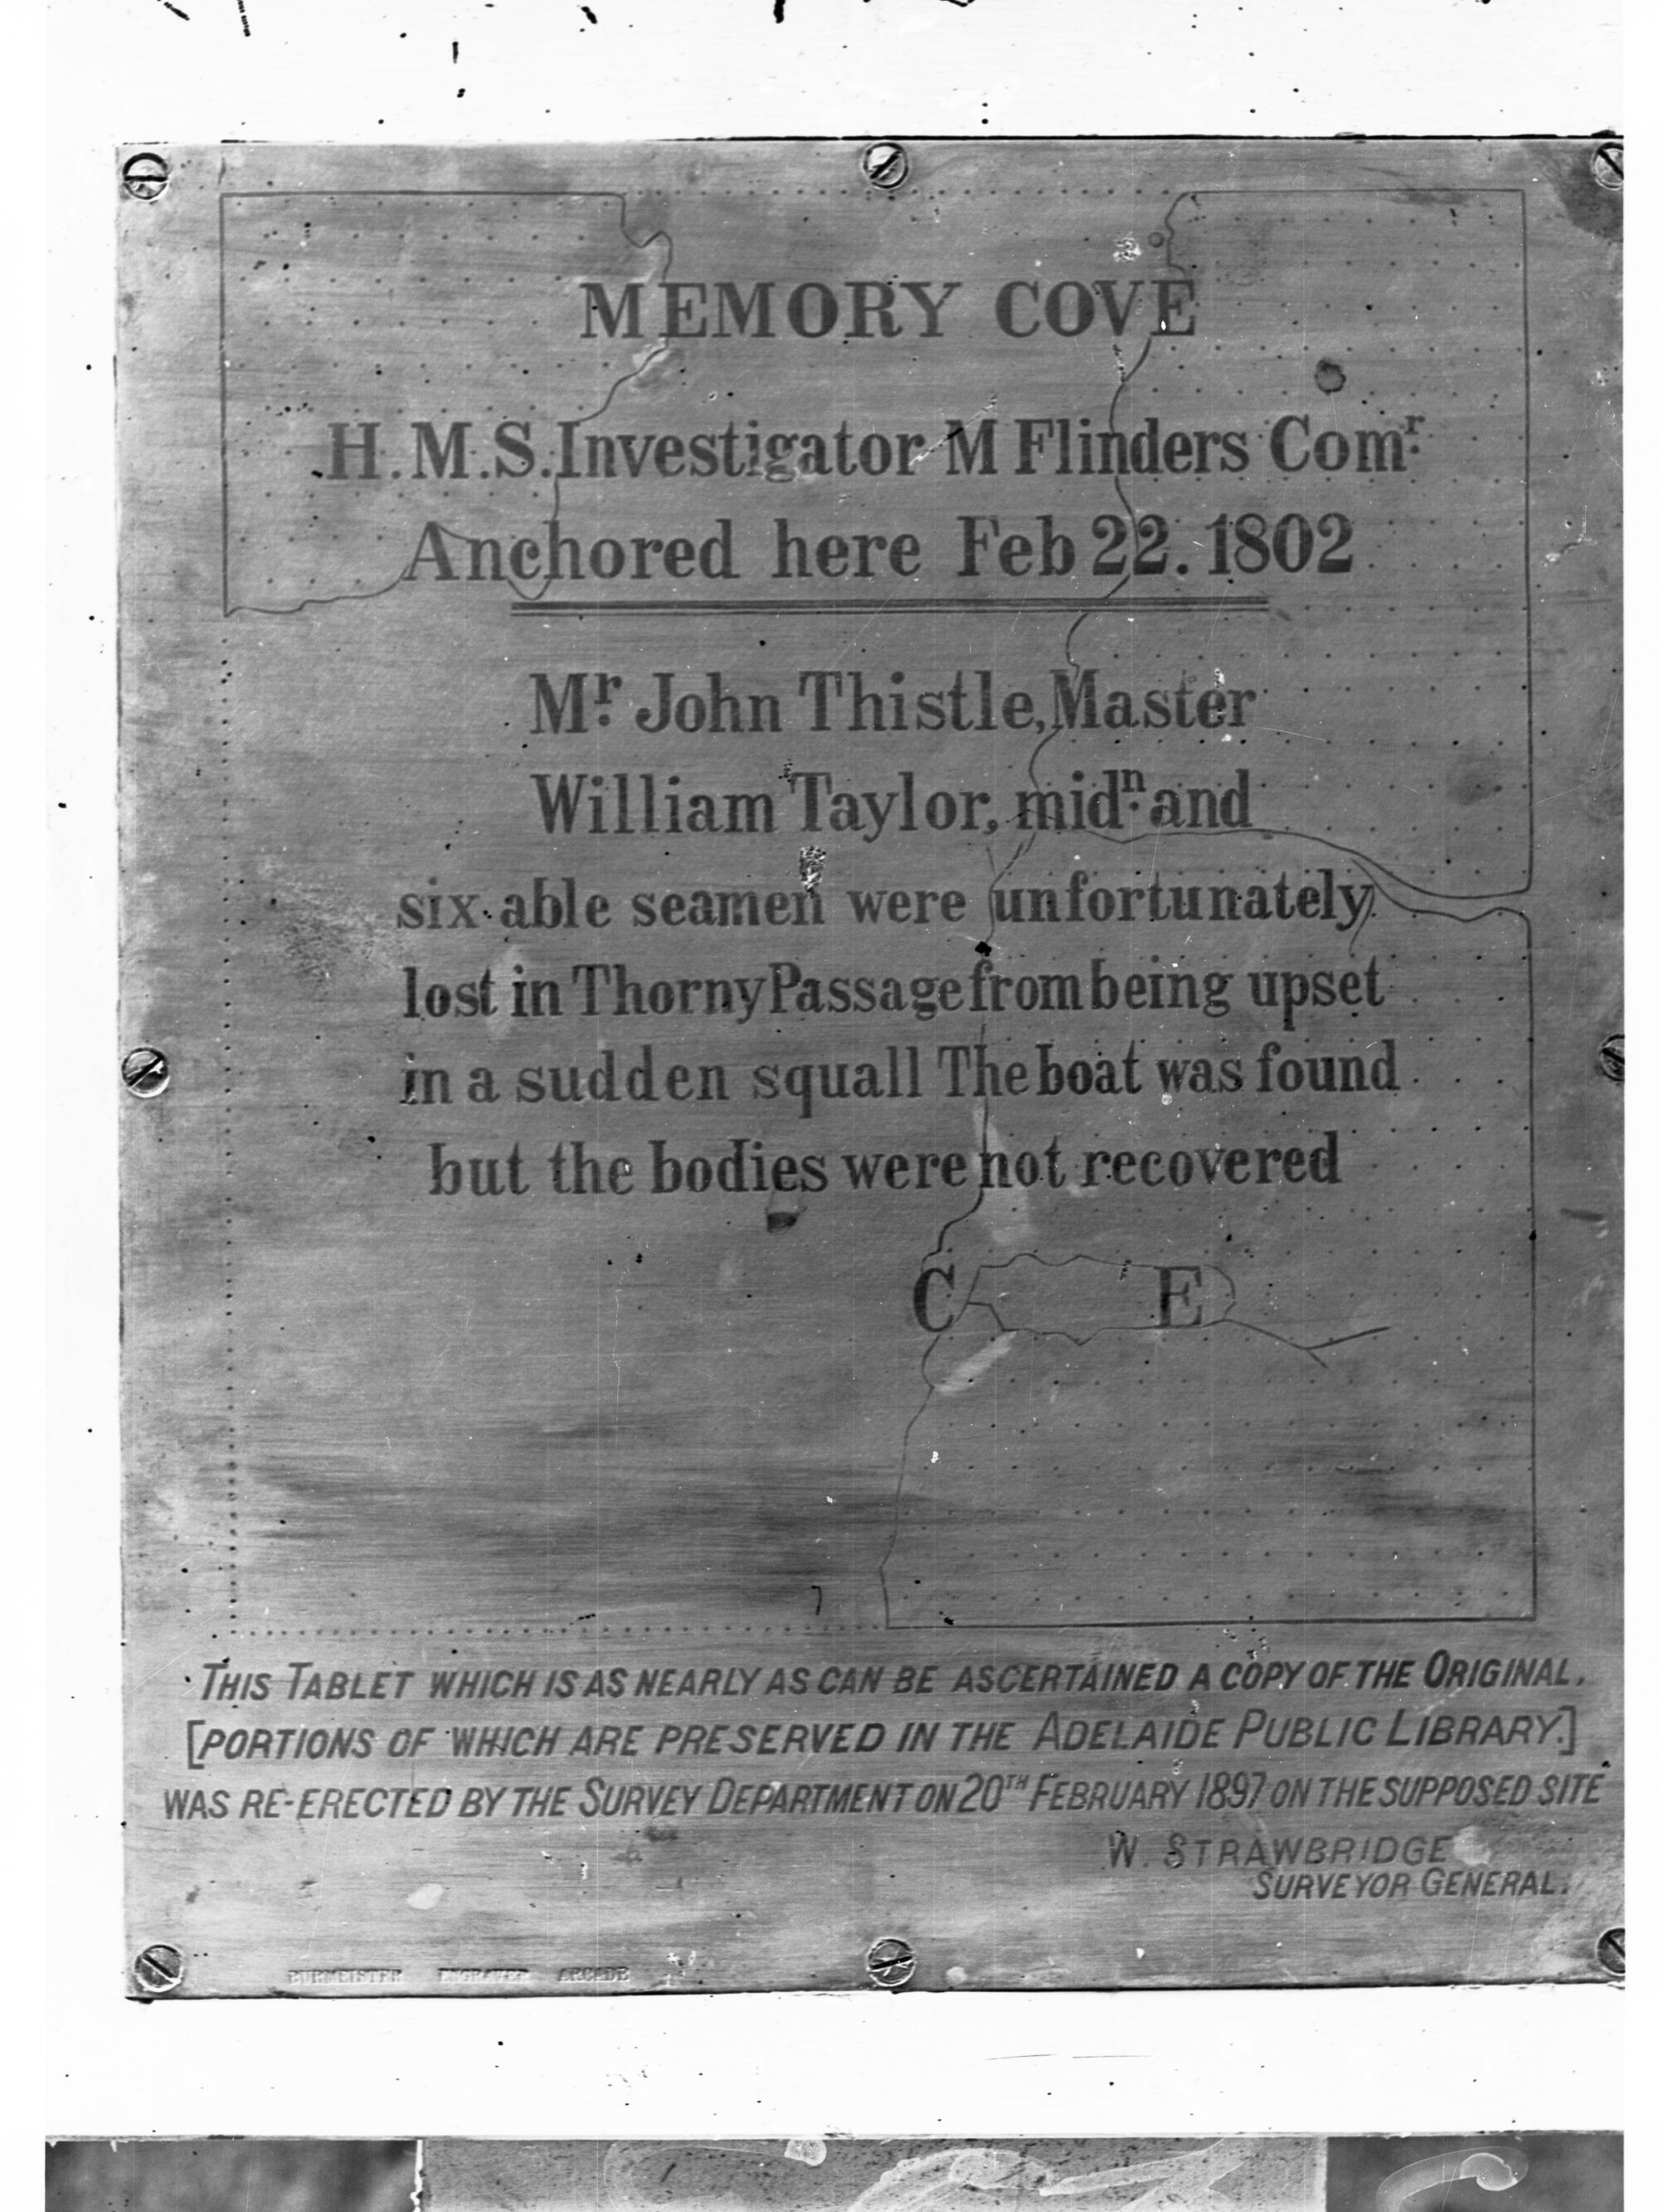 MEMORY COVE
H.M.S. Investigator M Flinders Comr.
Anchored here Feb 22. 1802
Mr. John Thistle, Master
William Taylor, midn. and
six able seamen were unfortunately
lost in Thorny Passage from being upset
in a sudden squall The boat was found
but the bodies were not recovered
C E
THIS TABLET WHICH IS AS NEARLY AS CAN BE ASCERTAINED A COPY OF THE ORIGINAL,
[PORTIONS OF WHICH ARE PRESERVED IN THE ADELAIDE PUBLIC LIBRARY.]
WAS RE-ERECTED BY THE SURVEY DEPARTMENT ON 20TH FEBRUARY 1897 ON THE SUPPOSED SITE
W. STRAWBRIDGE
SURVEYOR GENERAL.
BURMEISTER ENGRAVER ARCADE